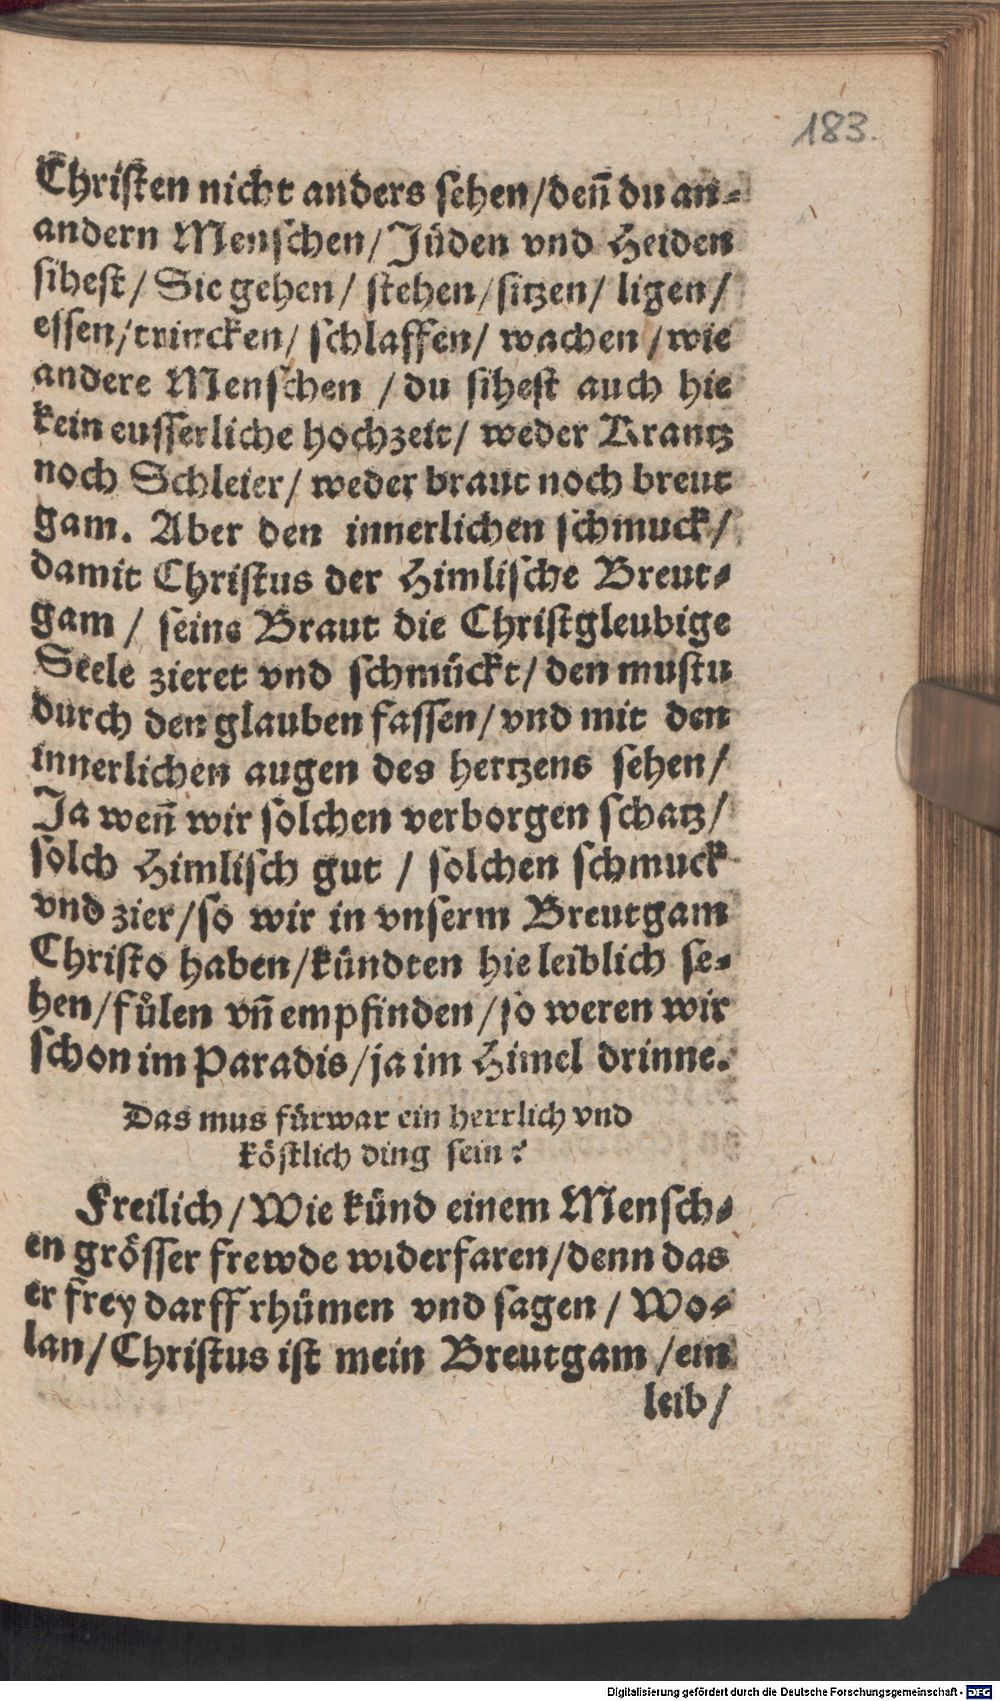 183.
Christen nicht anders sehen/deñ du an-
andern Menschen/Jüden vnd Heiden
sihest/ Sie gehen/ stehen/sitzen/ ligen/
essen/trincken/ schlaffen/ wachen /wie
andere Menschen /du sihest auch hie
kein eusserliche hochzeit/ weder Krantz
noch Schleier/ weder braut noch breut
gam. Aber den innerlichen schmuck/
damit Christus der Himlische Breut-
gam / seine Braut die Christgleubige
Seele zieret vnd schmückt/ den mustu
durch den glauben fassen/ vnd mit den
innerlichen augen des hertzens sehen/
Ja weñ wir solchen verborgen schatz/
solch Himlisch gut / solchen schmuck
vnd zier/so wir in vnserm Breutgam
Christo haben/kündten hie leiblich se-
hen/fülen vñ empfinden/so weren wir
schon im Paradis/ja im Himel drinne.
Das mus fürwar ein herrlich vnd
köstlich ding sein?
Freilich/Wie künd einem Mensch-
en grösser frewde widerfaren/denn das
er frey darff rhümen vnd sagen/ Wo-
lan/Christus ist mein Breutgam /ein
leib/
Digitalisierung gefördert durch die Deutsche Forschungsgemeinschaft - DFG